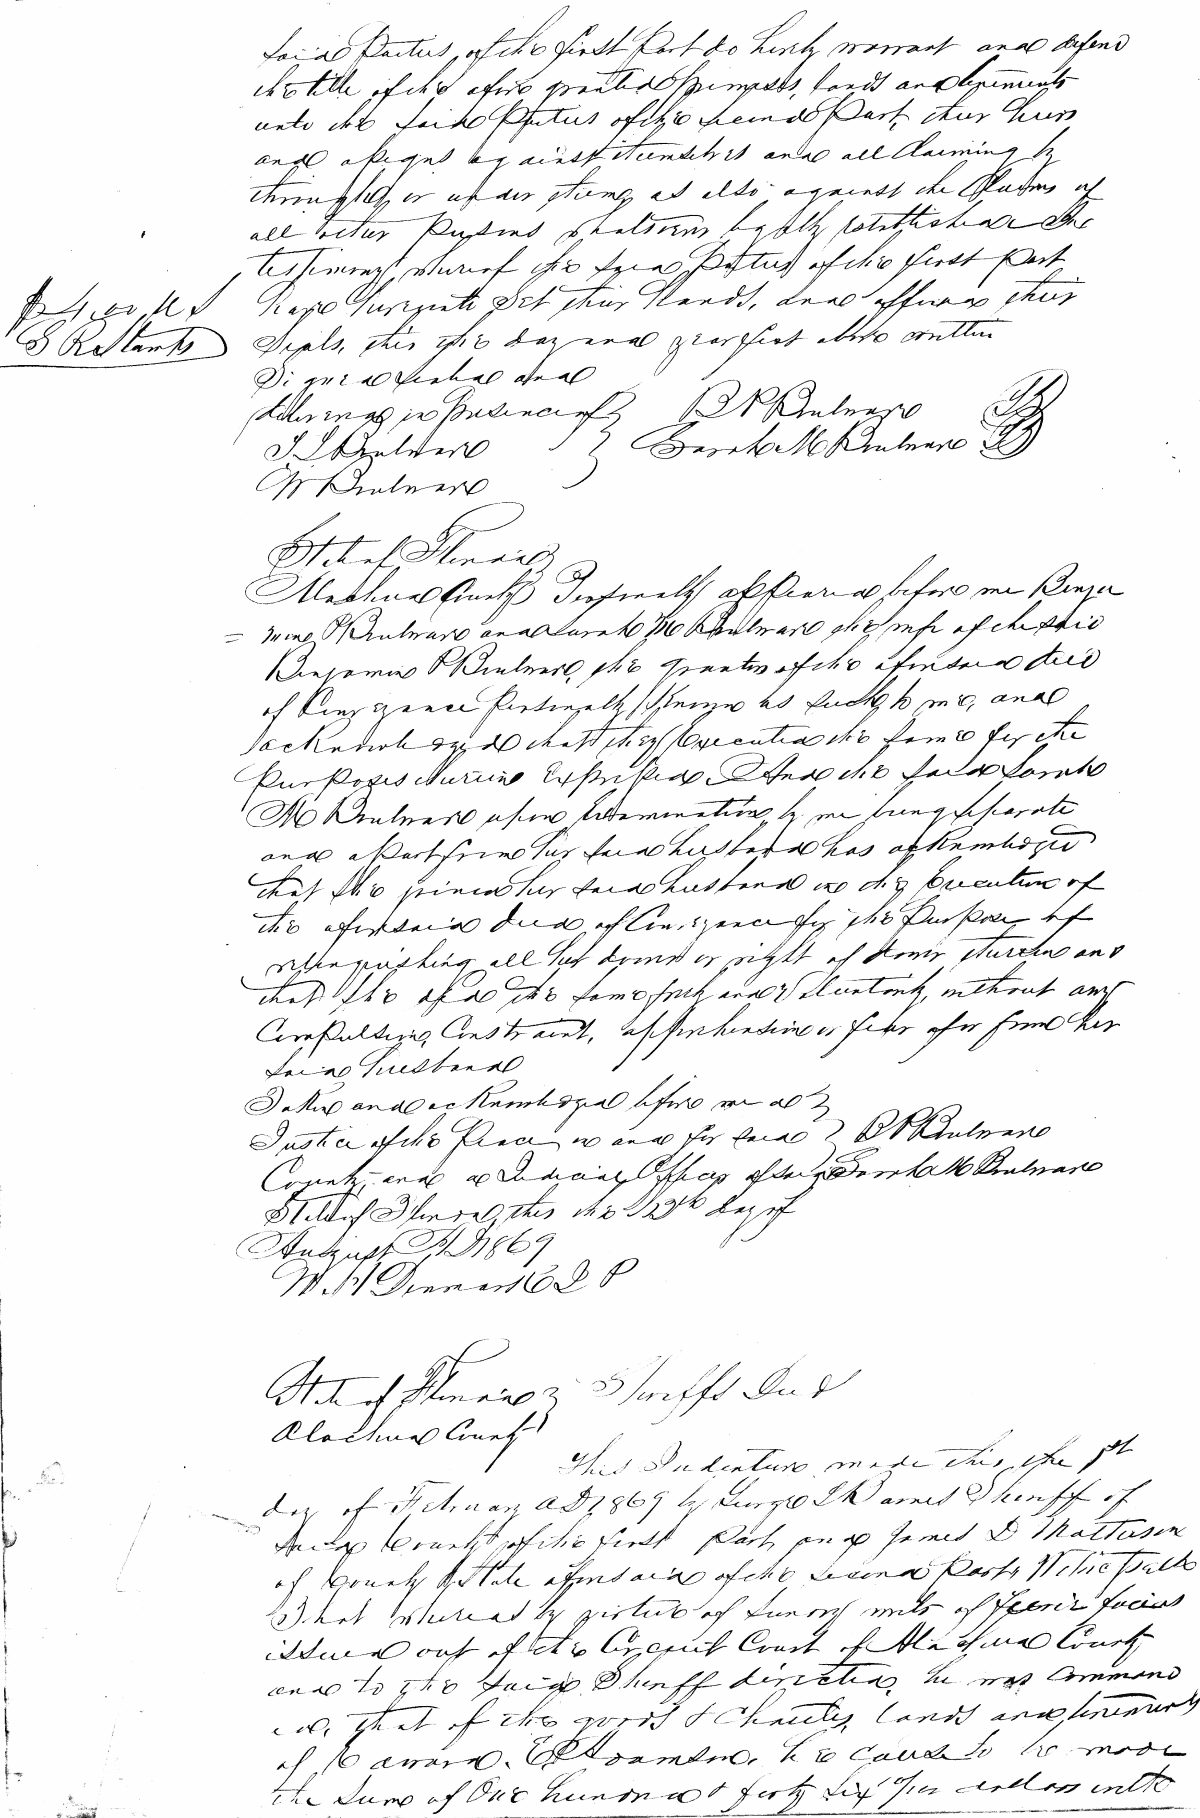 said Parties of the first Part do hereby warrant and defend
the title of the afore granted premises, lands and tenements
unto the said Parties of the second Part, their heirs
and assigns against themselves and all Claiming by
through or under them, as also against the Claims of
all other Persons whatsoever legally established In
testimony whereof the said Parties of the first Part
have hereunto Set their Hands, and affixed their
Seals, this the day and year first above written
Signed sealed and
delivered in Presence of
B P Boulware
J L Boulware
Sarah M Boulware
W Boulware
I R Stamps
State of Florida
Alachua County Personally appeared before me Benja
= min P Boulware and Sarah M Boulware the wife of the said
Benjamin P Boulware, the grantors of the aforesaid deed
of Conveyance Personally Known as such to me, and
acknowledged that they Executed the same for the
Purposes therein Expressed And the said Sarah
M Boulware upon Examination by me being separate
and apart from her said husband has acknowledged
that she joined her said husband in the Execution of
the aforesaid deed of Conveyance for the Purpose of
relinquishing all her dower or right of dower therein and
that she did the same freely and Voluntarily, without any
Compulsion, Constraint, apprehension or fear of or from her
said husband
Taken and acknowledged before me a
Justice of the Peace in and for said
B P Boulware
County, and a Judicial Officer of said
Sarah M Boulware
State of Florida, this the 12th day of
August A D 1869
State of Florida Sheriffs Deed
Alachua County
This Indenture made this the 1st
day of February A D 1869 by George L Barnes Sheriff of
said County of the first Part and James D Matheson
of County & State aforesaid of the second Part, Witnesseth
That whereas by virtue of sundry writs of fieri facias
issued out of the Circuit Court of Alachua County
and to the said Sheriff directed, he was Command
ed, that of the goods & Chattels, lands and tenements
of Edward he cause to be made
the Sum of One hundred & forty Six dollars with